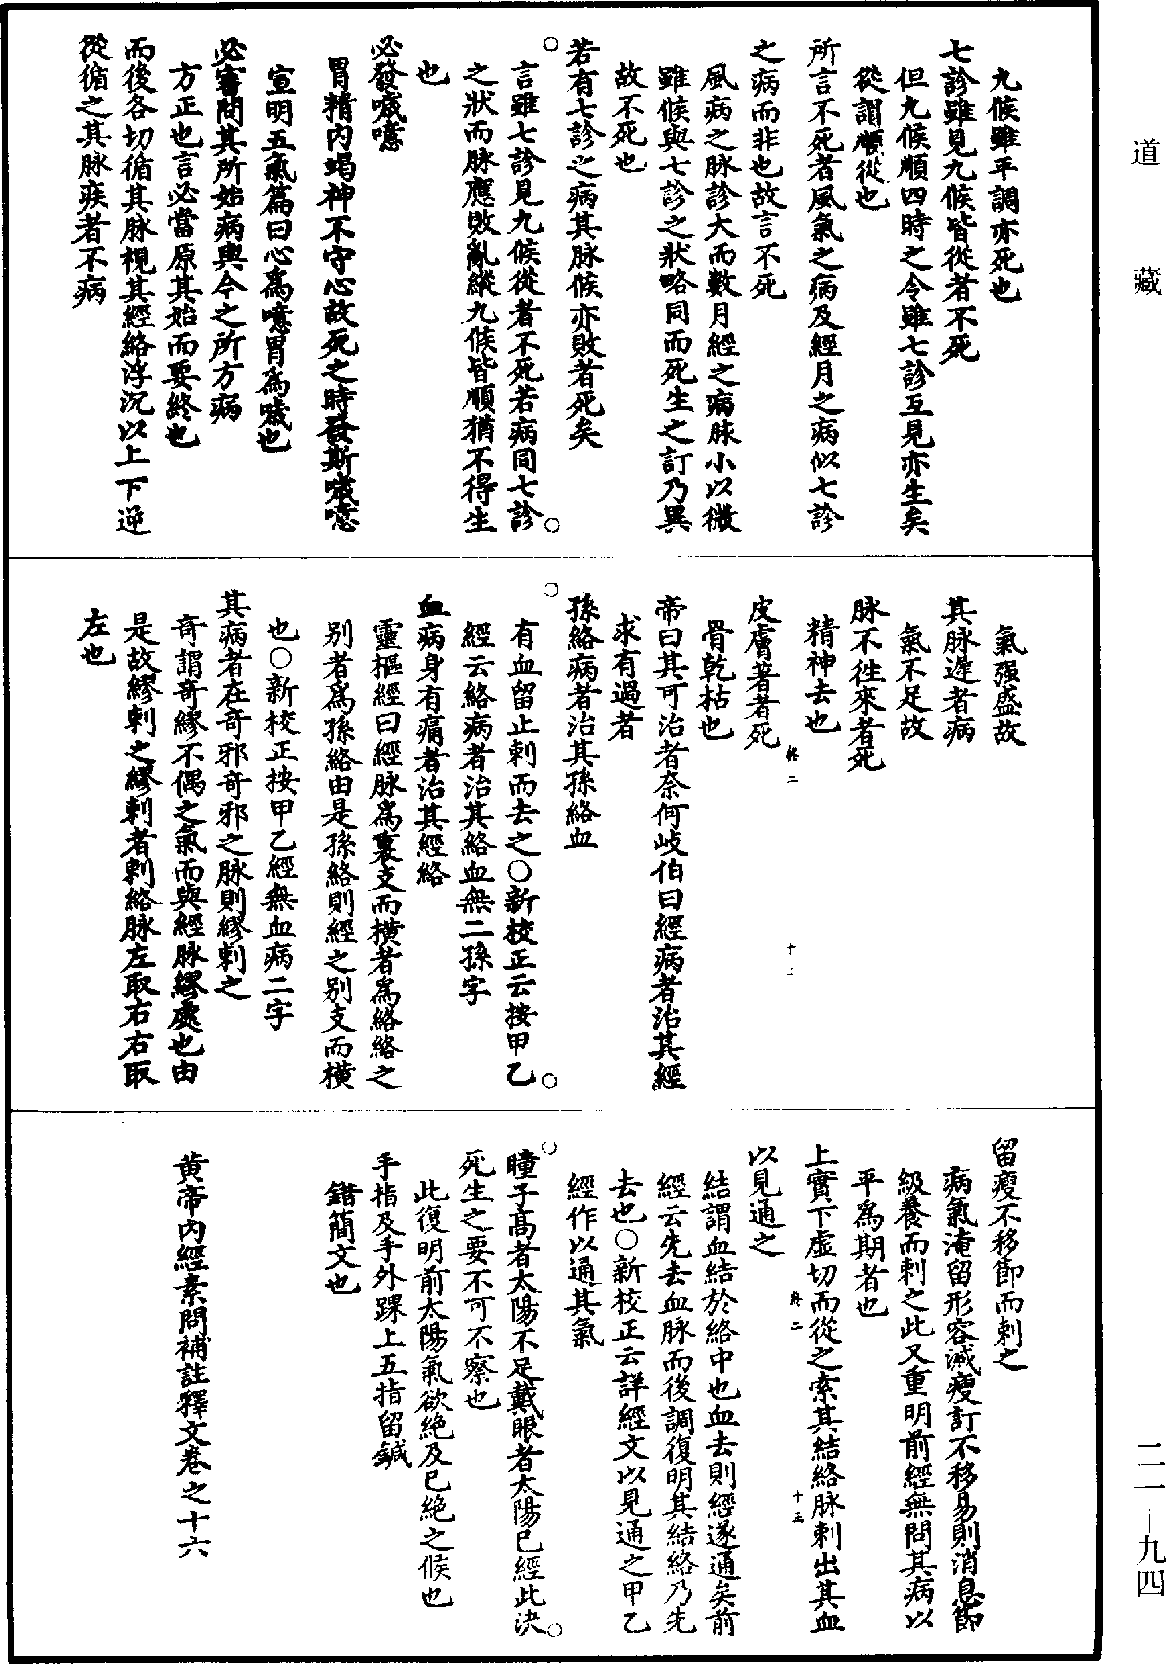 道藏
九候雖平調亦死也
七診雖見九候皆從者不死
但九候順四時之令雖七診互見亦生矣
從謂順從也
所言不死者風氣之病及經月之病似七診
之病而非也故言不死
風病之脉診大而數月經之病脉小以微
雖候與七診之狀略同而死生之訂乃異
故不死也
若有七診之病其脉候亦敗者死矣
言雖七診見九候從者不死若病同七診
之狀而脉應敗亂縱九候皆順猶不得生
也
必發噦噫
胃精內竭神不守心故死之時發斯噦噫
宣明五氣篇曰心爲噫胃爲噦也
必審問其所始病與今之所方病
方正也言必當原其始而要終也
而後各切循其脉視其經絡浮沉以上下逆
從循之其脉疾者不病
氣强盛故
其脉遲者病
氣不足故
脉不徃來者死
精神去也
皮膚著者死
骨乾枯也
帝曰其可治者奈何岐伯曰經病者治其經
求有過者
孫絡病者治其孫絡血
有血留止刺而去之○新校正云按甲乙
經云絡病者治其絡血無二孫字
血病身有痛者治其經絡
靈樞經曰經脉爲裏支而橫者爲絡絡之
別者爲孫絡由是孫絡則經之別支而橫
也○新校正按甲乙經無血病二字
其病者在奇邪奇邪之脉則繆刺之
奇謂奇繆不偶之氣而與經脉繆處也由
是故繆刺之繆刺者刺絡脉左取右右取
左也
留瘦不移節而刺之
病氣淹留形容減瘦訂不移易則消息節
級養而刺之此又重明前經無問其病以
平爲期者也
上實下虛切而從之索其結絡脉刺出其血
以見通之
結謂血結於絡中也血去則經遂通矣前
經云先去血脉而後調復明其結絡乃先
去也○新校正云詳經文以見通之甲乙
經作以通其氣
瞳子高者太陽不足戴眼者太陽已經此決
死生之要不可不察也
此復明前太陽氣欲絶及已絶之候也
手指及手外踝上五指留鍼
錯簡文也
黄帝內經素問補註釋文卷之十六
二一—九四